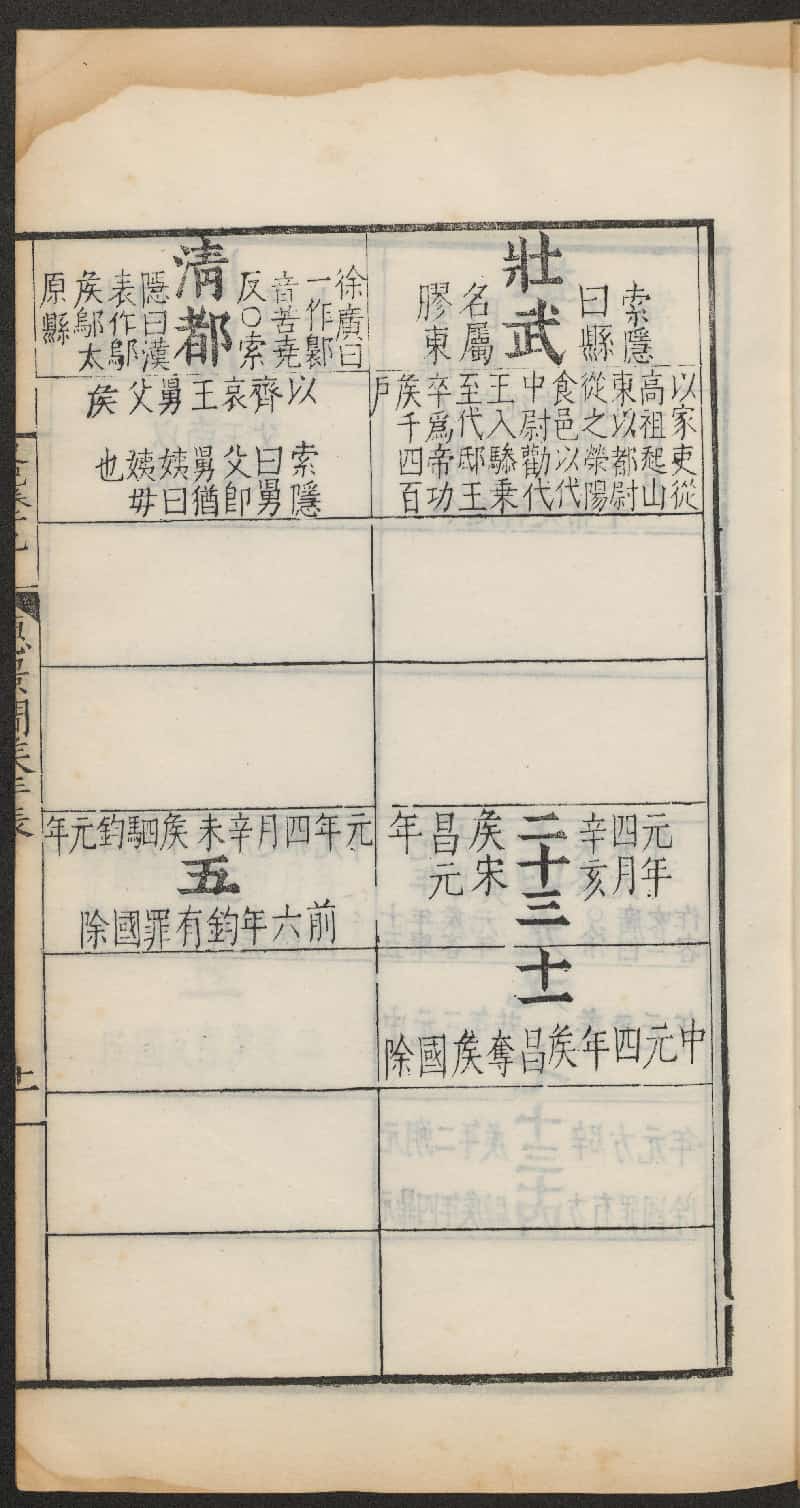 壯武
索隱
曰縣
名屬
膠東
以家吏從
高祖起山
東以都尉
從之榮陽
食邑以代
中尉勸代
王入驂乘
至代邸王
卒爲帝功
矦千四百
户
元年
四月
辛亥
二十三
矦宋
昌元
年
十一
中元四年矦昌奪矦國除
清都
徐廣曰
一作鄡
音苦堯
反○索
隱曰漢
表作鄔
矦鄔太
原縣
以齊哀王舅父矦
索隱
曰舅
父即
舅猶
姨曰
姨毋
也
元年四月辛未矦駟鈞元年
五
前六年鈞有罪國除